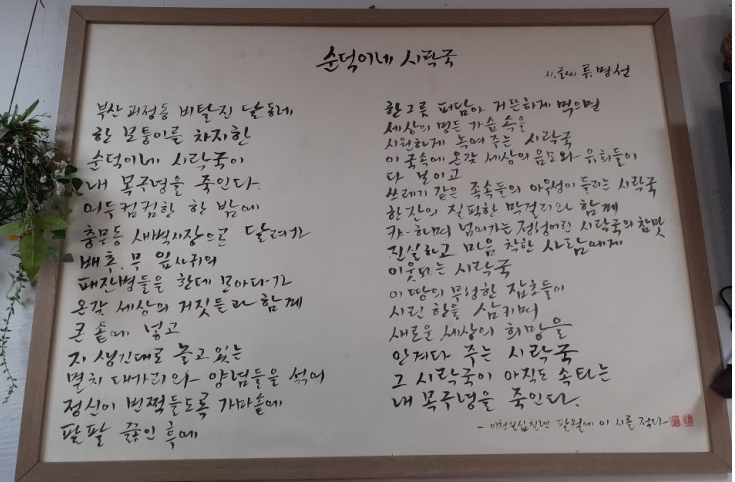 순덕이네 시락국
시.글씨 류명선
부산 괴정동 비탈진 달동네
한 모퉁이를 차지한
순덕이네 시락국이
내 목구녕을 죽인다.
어두컴컴한 한 밤에
충무동 새벽시장으로 달려가
배추, 무 잎사귀의
패잔병들을 한데 모아다가
온갖 세상의 거짓들과 함께
큰 솥에 넣고
지 생긴대로 놀고있는
멸치 대가리와 양념들을 섞어
정신이 번쩍들도록 가마솥에
팔팔 끓인 후에
한그릇 퍼담아 거뜬하게 먹으면
세상의 멍든 가슴속을
시원하게 녹여주는 시락국
이 국속에 온갖 세상의 음모와 유희들이
다 모이고
쓰레기 같은 족속들의 아우성이 들리는 시락국
한잔의 질펀한 막걸리와 함께
캬-하며 넘어가는 정성어린 시락국의 참맛
진실하고 마음 착한 사람에게
이웃되는 시락국
이 땅의 무성한 잡초들이
시린 한을 삼키며
새로운 세상의 희망을
안겨다 주는 시락국
그 시락국이 아직도 속타는
내 목구녕을 죽인다.
- 이천십칠년 팔월에 이 시를 적다-